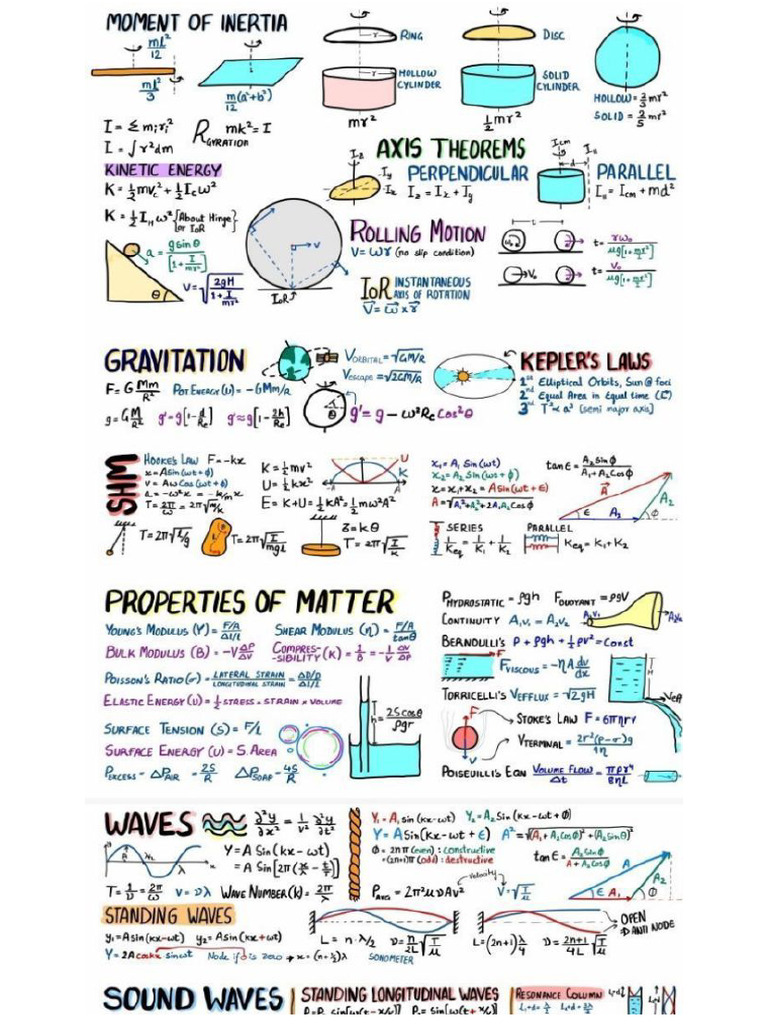 MOMENT OF INERTIA
ml²/12
ml²/3
m/12(a²+b²)
r
RING
HOLLOW CYLINDER
mr²
DISC
SOLID CYLINDER
½mr²
HOLLOW = 2/3 mr²
SOLID = 2/5 mr²
I = Σmᵢrᵢ²
I = ∫r²dm
R GYRATION mk² = I
AXIS THEOREMS
PERPENDICULAR
I_z = I_x + I_y
PARALLEL
I_∥ = I_cm + md²
KINETIC ENERGY
K = ½mv_c² + ½I_cω²
K = ½I_Hω² {About Hinge or IOR}
a = gsinθ/[1+I/mr²]
V = √(2gH/(1+I/mr²))
θ
v
IOR
ROLLING MOTION
V = ωr (no slip condition)
IOR INSTANTANEOUS AXIS OF ROTATION
V = ω × r
L
ω₀
t = rω₀/μg[1+mr²/I]
V₀
GRAVITATION
F = G Mm/R² POT ENERGY (U) = -GMm/R
g = G M/R² g' = g[1-d/Re] g' ≈ g[1-2h/Re]
V ORBITAL = √GM/R
V ESCAPE = √2GM/R
g' = g - ω²Re Cos²θ
KEPLER'S LAWS
1st Elliptical Orbits, Sun @ foci
2nd Equal Area in Equal time (L)
3rd T² ∝ a³ (semi major axis)
SHM
HOOKE'S LAW F = -kx
x = A Sin(ωt+φ)
v = Aω Cos(ωt+φ)
a = -ω²x = -k/m x
T = 2π/ω = 2π√m/k
K = ½mv²
U = ½kx²
E = K+U = ½kA² = ½mω²A²
U
K
-A
A
x₁ = A₁ Sin(ωt)
x₂ = A₂ Sin(ωt+φ)
x = x₁+x₂ = A Sin(ωt+ε)
A = √A₁²+A₂²+2A₁A₂Cosφ
tan ε = A₂Sinφ/(A₁+A₂Cosφ)
A
A₂
ε
A₁
φ
T = 2π√L/g
T = 2π√I/mgl
τ = kθ
T = 2π√I/k
SERIES
1/Keq = 1/K₁ + 1/K₂
PARALLEL
Keq = K₁+K₂
PROPERTIES OF MATTER
YOUNG'S MODULUS (Y) = F/A / Δl/l SHEAR MODULUS (η) = F/A / tanθ
BULK MODULUS (B) = -V ΔP/ΔV COMPRES-SIBILITY (K) = 1/B = -1/V ΔV/ΔP
POISSON'S RATIO (σ) = LATERAL STRAIN/LONGITUDINAL STRAIN = ΔD/D / Δl/l
ELASTIC ENERGY (U) = ½ STRESS × STRAIN × VOLUME
SURFACE TENSION (S) = F/L
SURFACE ENERGY (U) = S.AREA
P EXCESS = ΔP AIR = 2S/R ΔP SOAP = 4S/R
h = 2Scosθ/ρgr
P HYDROSTATIC = ρgh F BUOYANT = ρgV
CONTINUITY A₁V₁ = A₂V₂
A₁V₁
BERNOULLI'S P + ρgh + ½ρv² = Const
F
F VISCOUS = -ηA dv/dx
TORRICELLI'S V EFFLUX = √2gH
H
F
V
STOKE'S LAW F = 6πηrv
V TERMINAL = 2r²(ρ-σ)g/9η
POISEUILLI'S EQN VOLUME FLOW/Δt = πpr⁴/8ηL
WAVES
∂²y/∂x² = 1/v² ∂²y/∂t²
Y = A Sin(kx-ωt)
= A Sin[2π(x/λ - t/T)]
T = 1/ν = 2π/ω V = νλ WAVE NUMBER (k) = 2π/λ
Y₁ = A₁ sin(kx-ωt) Y₂ = A₂ Sin(kx-ωt+φ)
Y = A Sin(kx-ωt+ε) A² = √(A₁+A₂Cosφ)²+(A₂Sinθ)²
φ = 2nπ (even) : constructive
= (2n+1)π (odd) : destructive
tan ε = A₂Sinφ/(A+A₂Cosφ)
P avg = 2π²μνAv²
velocity
V = √T/μ
A
A₂
ε
A₁
φ
STANDING WAVES
y₁ = A sin(kx-ωt) y₂ = A Sin(kx+ωt)
Y = 2A coskx sinωt
L = n·λ/2 ν = n/2L √T/μ
SONOMETER
L = (2n+1) λ/4 ν = 2n+1/4L √T/μ
OPEN
ANTI NODE
SOUND WAVES
STANDING LONGITUDINAL WAVES
RESONANCE COLUMN